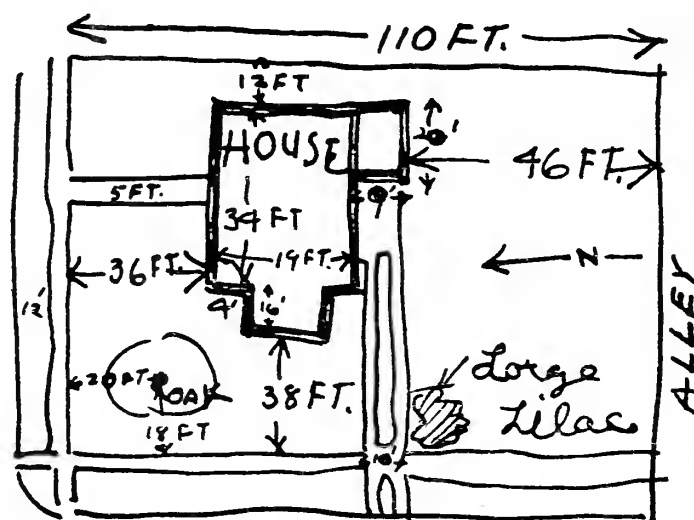 110 FT.
12 FT
HOUSE
20'
46 FT.
5 FT.
9'
34 FT
36 FT.
19 FT.
N
12'
4'
16'
ALLEY
20 FT
OAK
38 FT.
Large
Lilac
18 FT
10'